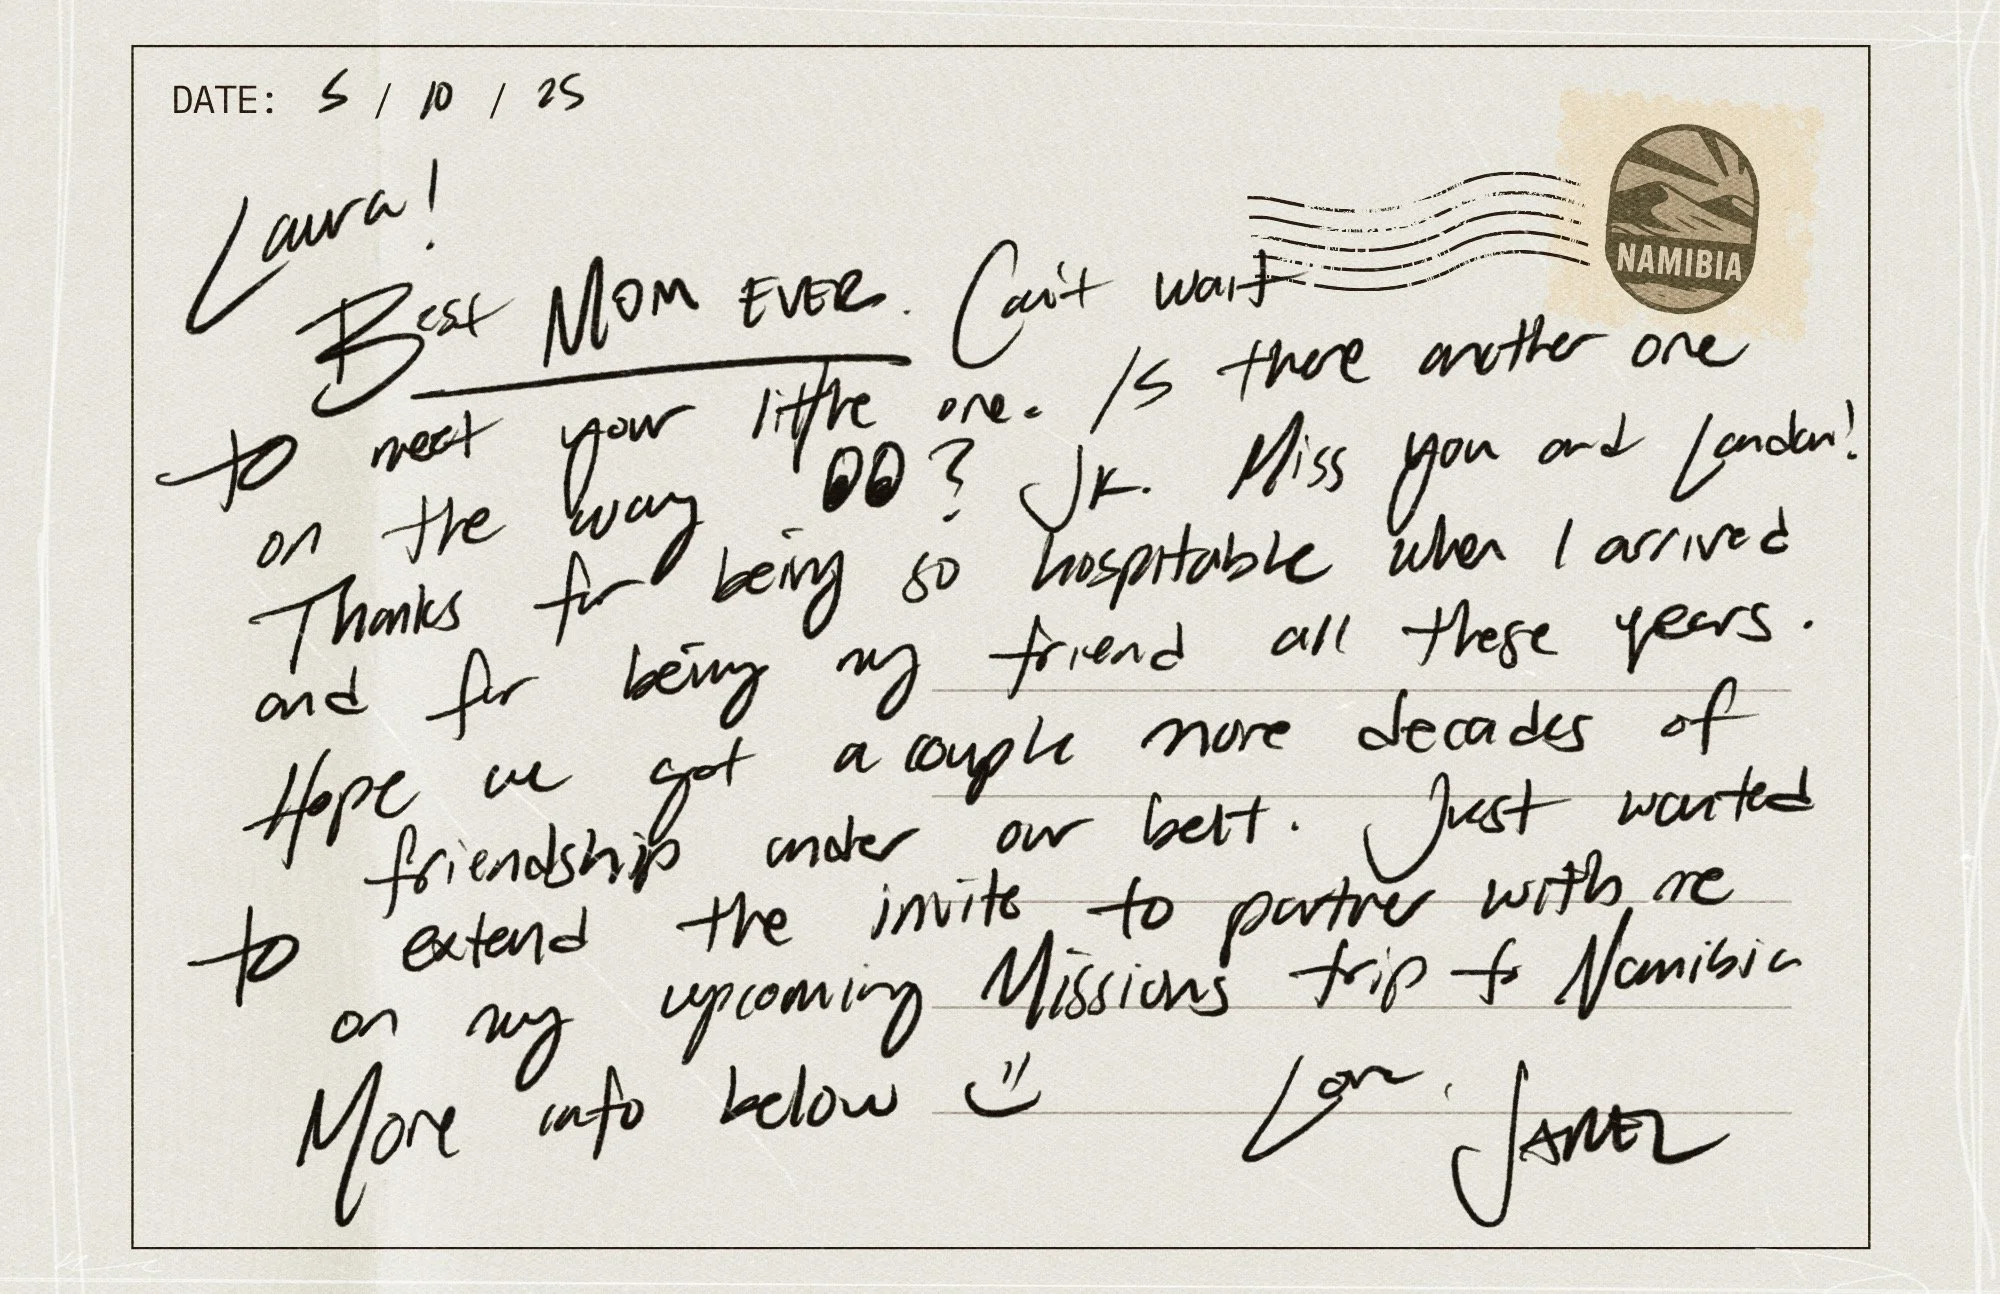 DATE: 5 / 10 / 25
NAMIBIA
Laura!
Best MOM EVER. Can't wait
to meet your little one. Is there another one
on the way 👀? Jk. Miss you and Landon!
Thanks for being so hospitable when I arrived
and for being my friend all these years.
Hope we got a couple more decades of
friendship under our belt. Just wanted
to extend the invite to partner with me
on my upcoming Missions trip to Namibia
More info below :)
Love,